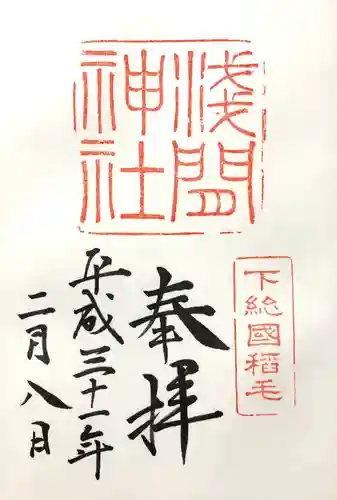 淺間
神社
下総國稲毛
奉拝
平成三十一年
二月八日